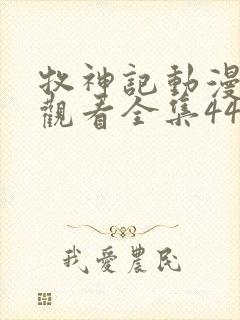 牧神記動漫
觀看全集44
我愛農民